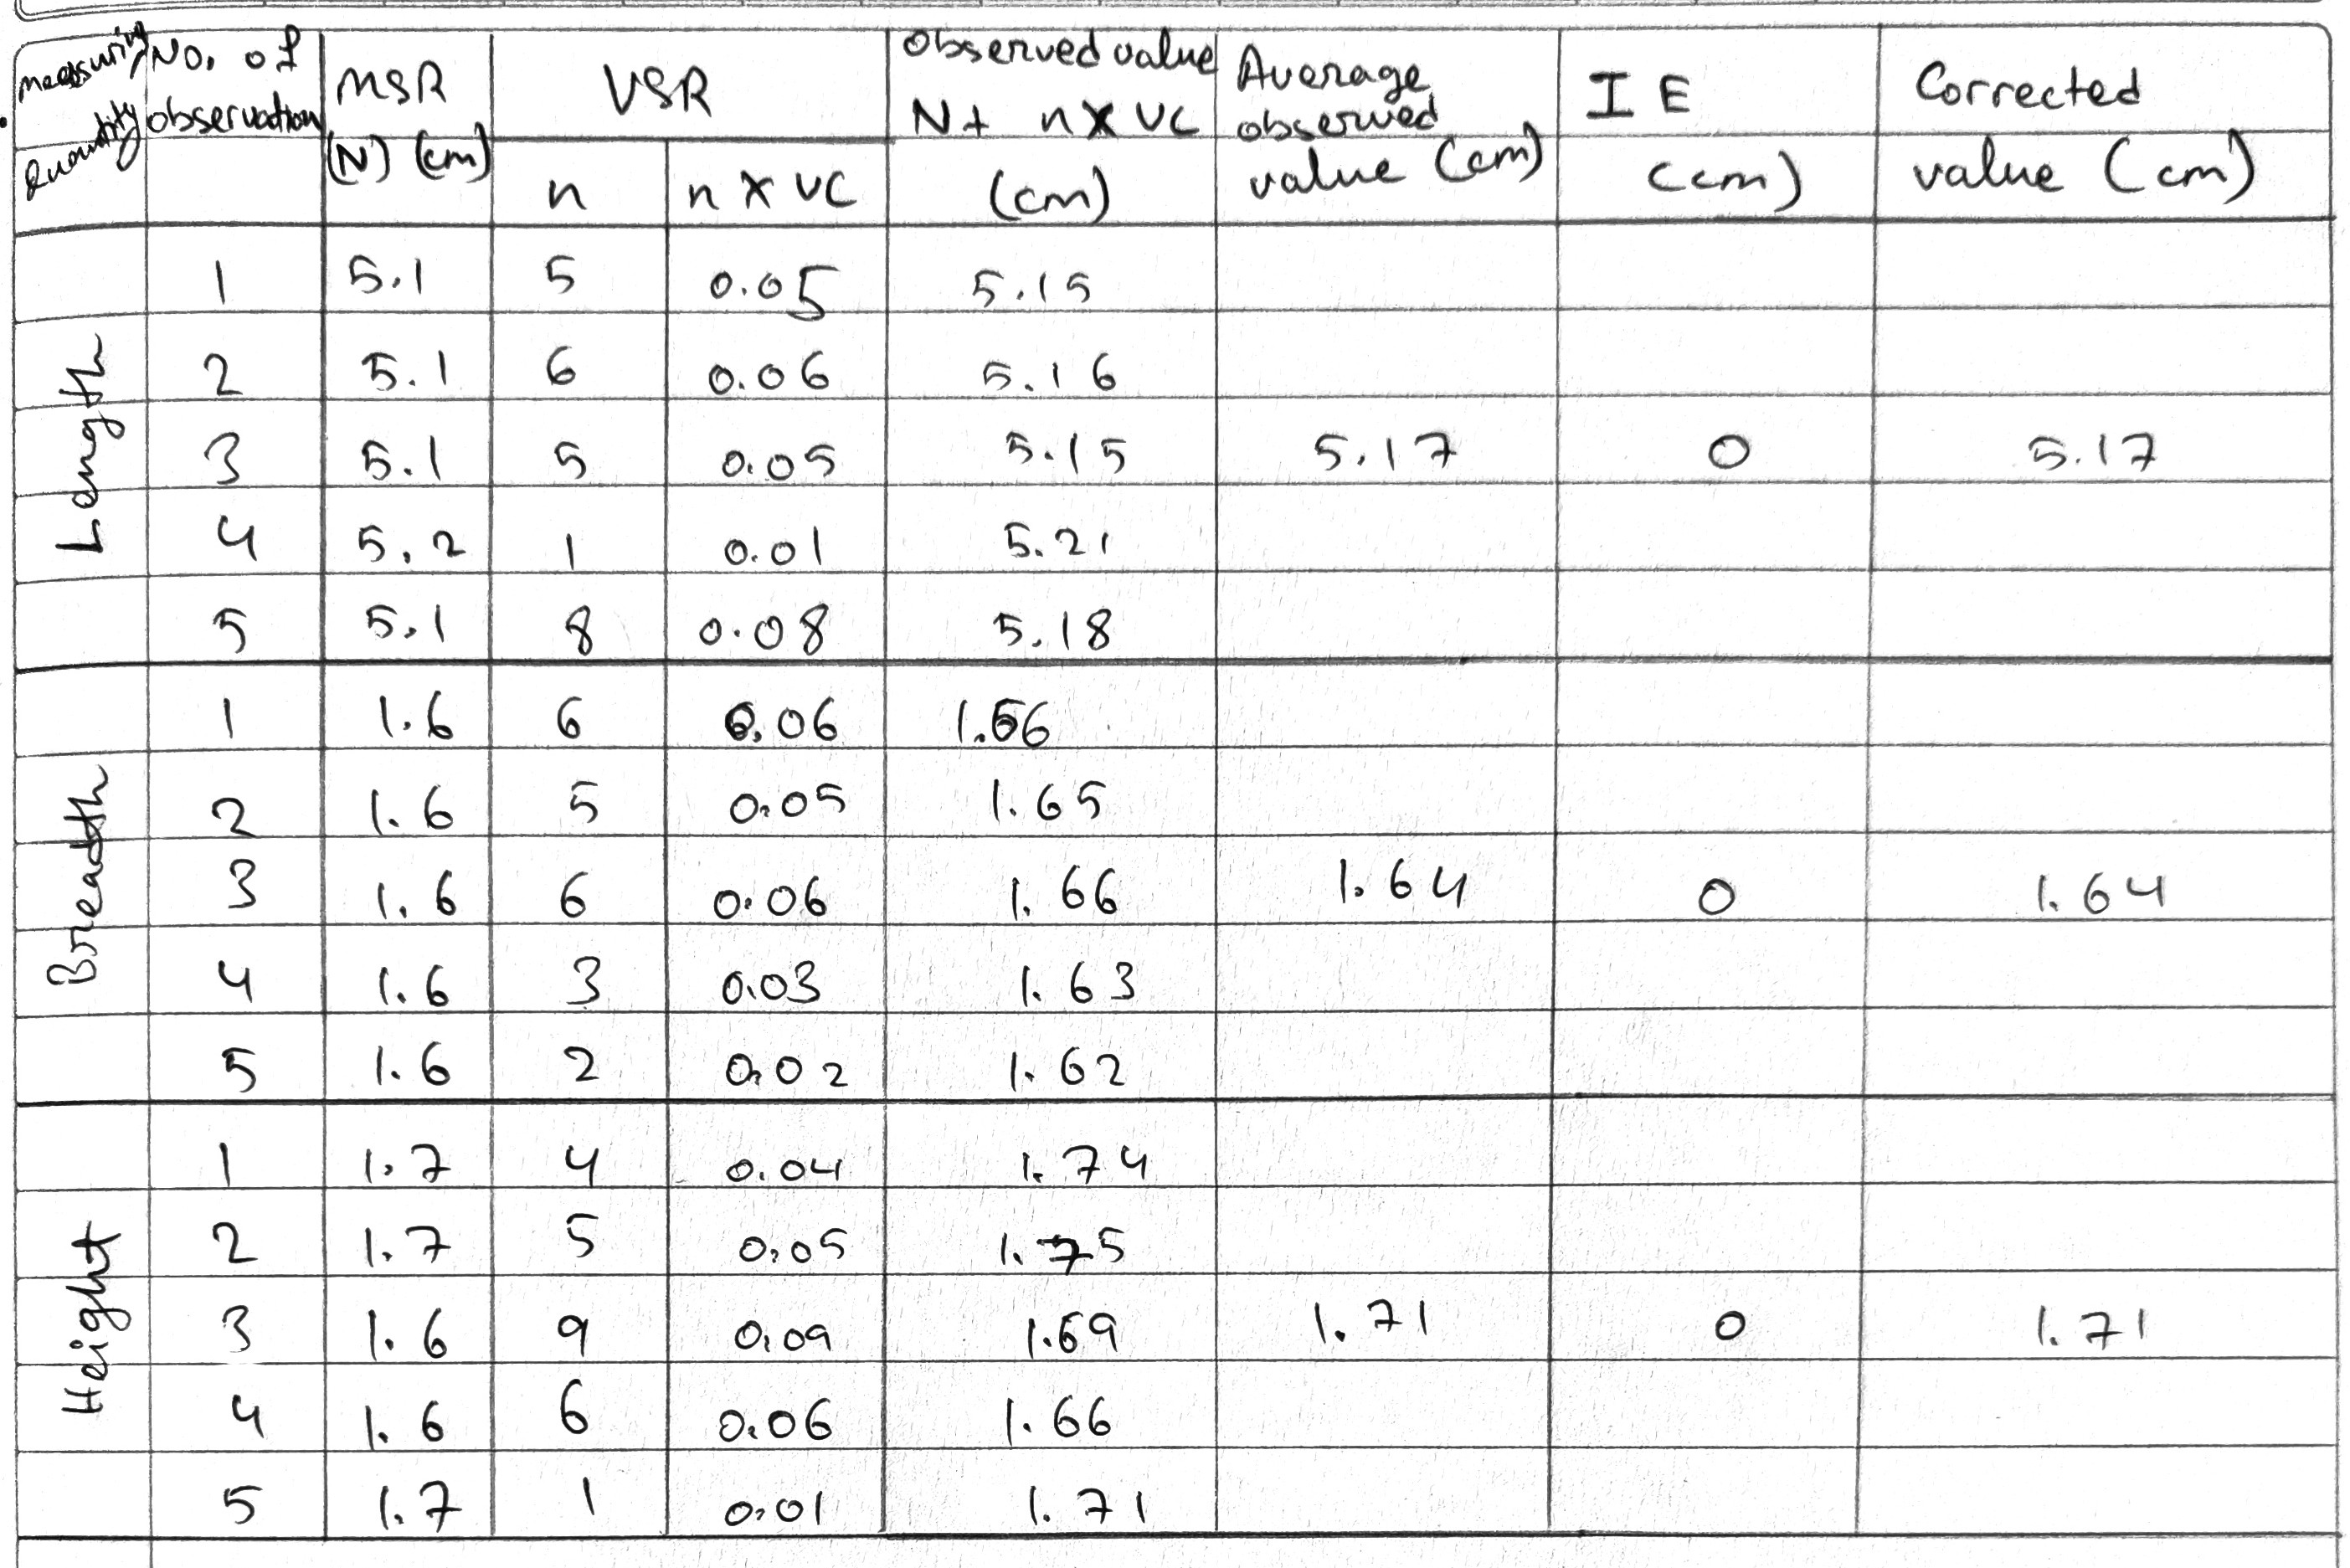 Measuring Quantity | No. of observation | MSR (N) (cm) | VSR | Observed value N+ n x VC (cm) | Average observed value (cm) | I E (cm) | Corrected value (cm)
n | n x VC
Length
1 | 5.1 | 5 | 0.05 | 5.15
2 | 5.1 | 6 | 0.06 | 5.16
3 | 5.1 | 5 | 0.05 | 5.15 | 5.17 | 0 | 5.17
4 | 5.2 | 1 | 0.01 | 5.21
5 | 5.1 | 8 | 0.08 | 5.18
Breadth
1 | 1.6 | 6 | 0.06 | 1.66
2 | 1.6 | 5 | 0.05 | 1.65
3 | 1.6 | 6 | 0.06 | 1.66 | 1.64 | 0 | 1.64
4 | 1.6 | 3 | 0.03 | 1.63
5 | 1.6 | 2 | 0.02 | 1.62
Height
1 | 1.7 | 4 | 0.04 | 1.74
2 | 1.7 | 5 | 0.05 | 1.75
3 | 1.6 | 9 | 0.09 | 1.69 | 1.71 | 0 | 1.71
4 | 1.6 | 6 | 0.06 | 1.66
5 | 1.7 | 1 | 0.01 | 1.71